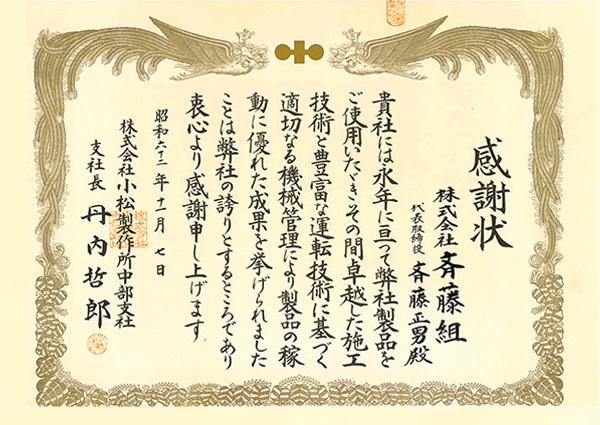 感謝状
株式会社 斉藤組
代表取締役 斉藤正男殿
貴社には永年に亘って弊社製品を
ご使用いたゞきその間卓越した施工
技術と豊富な運転技術に基づく
適切なる機械管理により製品の稼
動に優れた成果を挙げられました
ことは弊社の誇りとするところであり
衷心より感謝申し上げます
昭和六十二年十一月七日
株式会社小松製作所中部支社
支社長 丹内哲郎